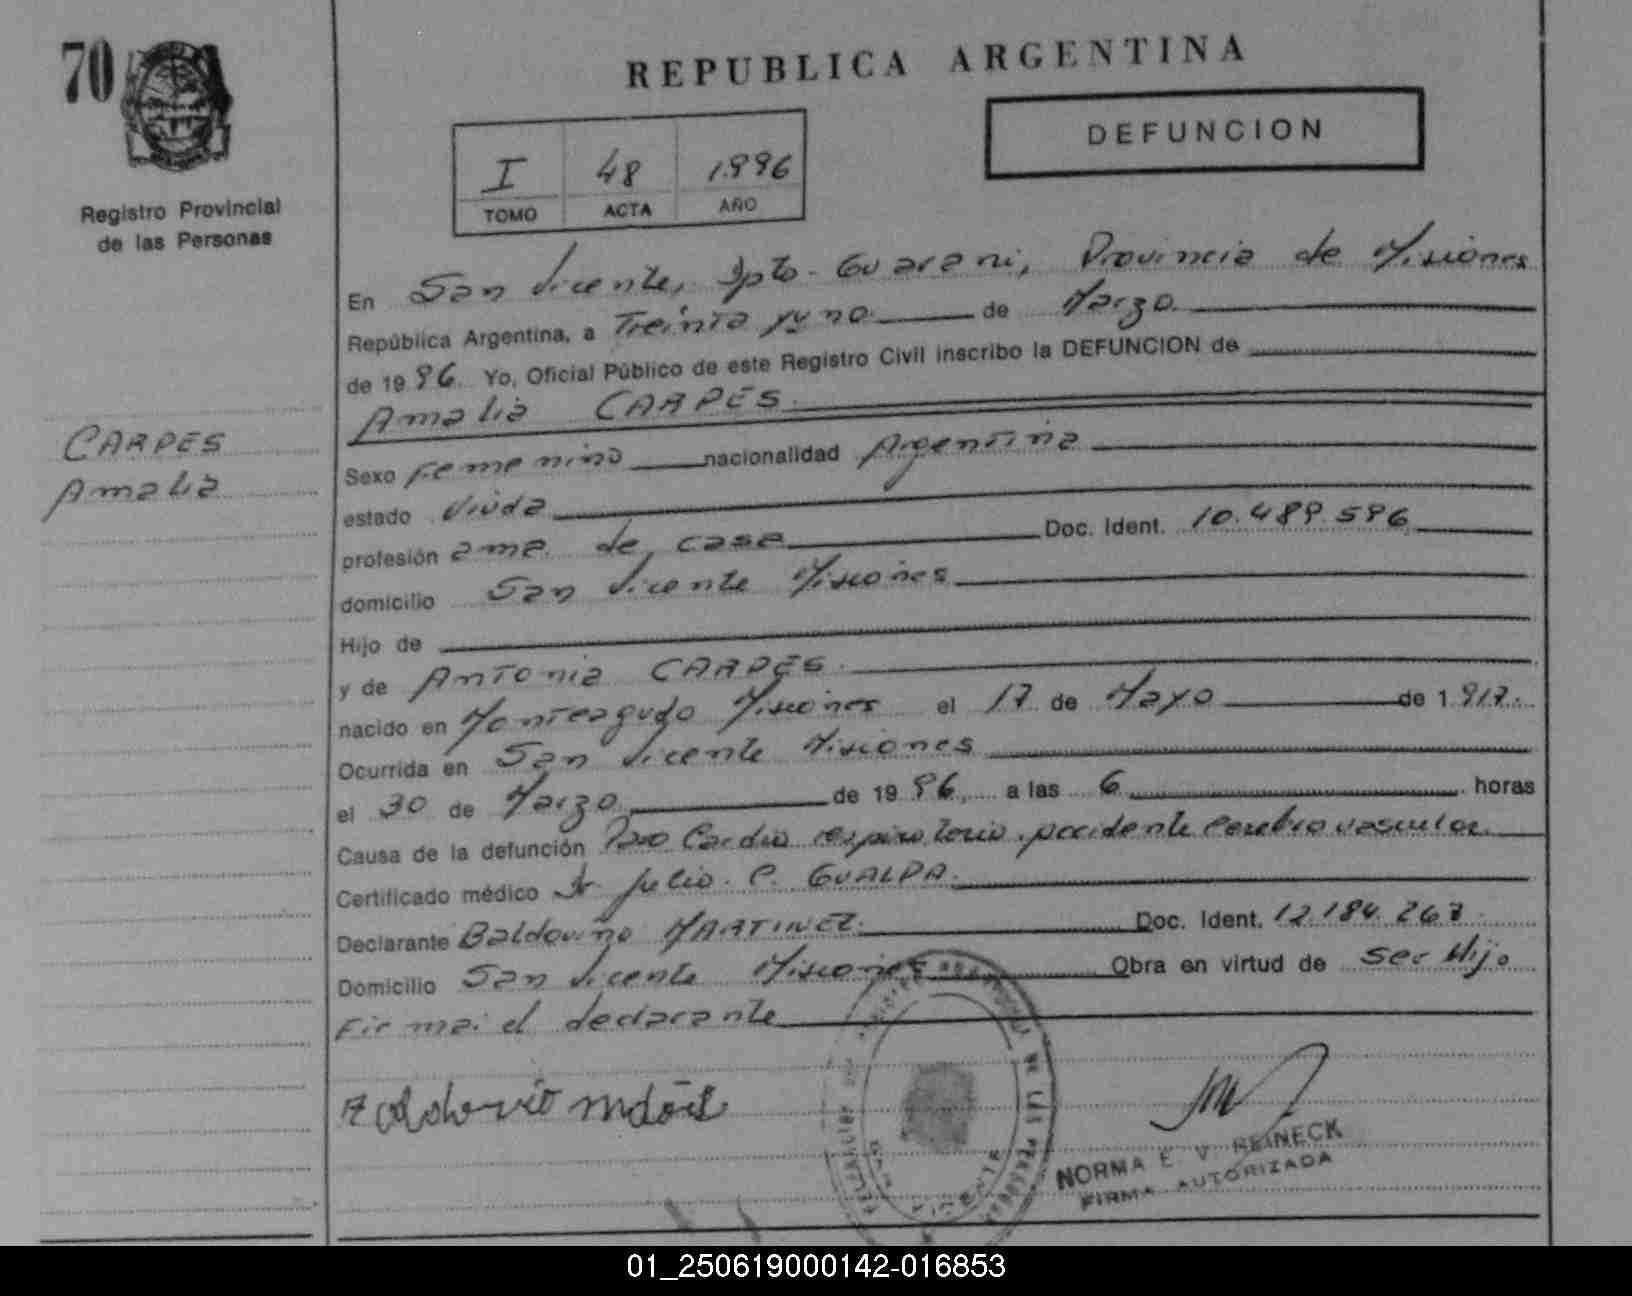 70
REPUBLICA ARGENTINA
DEFUNCION
I 48 1.996
TOMO ACTA AÑO
Registro Provincial
de las Personas
CARPES
Amalia
En San Vicente, Dpto. Guarani, Provincia de Misiones
República Argentina, a Treinta y uno de Marzo
de 19 96. Yo, Oficial Público de este Registro Civil inscribo la DEFUNCION de
Amalia CARPES.
Sexo Femenino nacionalidad Argentina
estado Viuda
profesión ama de casa Doc. Ident. 10.489.596
domicilio San Vicente Misiones
Hijo de
y de Antonia CARPES.
nacido en Monteagudo Misiones el 17 de Mayo de 1.917.
Ocurrida en San Vicente Misiones
el 30 de Marzo de 19 96, a las 6 horas
Causa de la defunción Paro Cardio respiratorio. accidente cerebro vascular.
Certificado médico Dr. Julio. C. GUALPA.
Declarante Baldovino MARTINEZ. Doc. Ident. 12.184.267.
Domicilio San Vicente Misiones Obra en virtud de ser Hijo
Firma: el declarante
NORMA E. V. REINECK
FIRMA AUTORIZADA
01_250619000142-016853